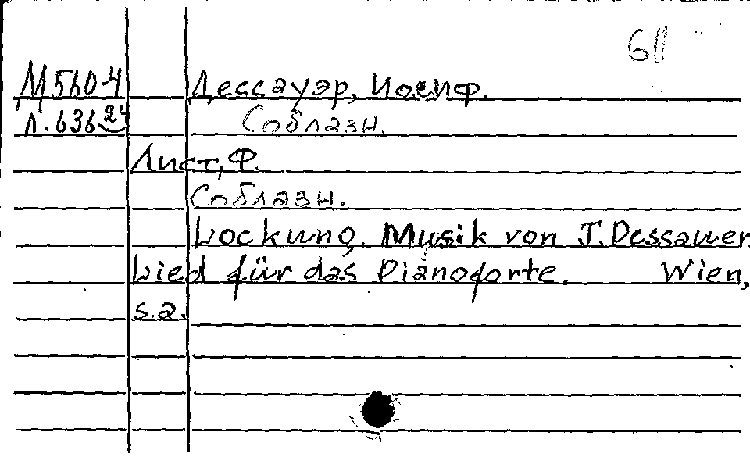 611
М5604 Дессауэр, Иосиф.
Л.636²⁴ Соблазн.
Лист, Ф.
Соблазн.
Lockung. Musik von J. Dessauer.
Lied für das Pianoforte. Wien,
s.a.